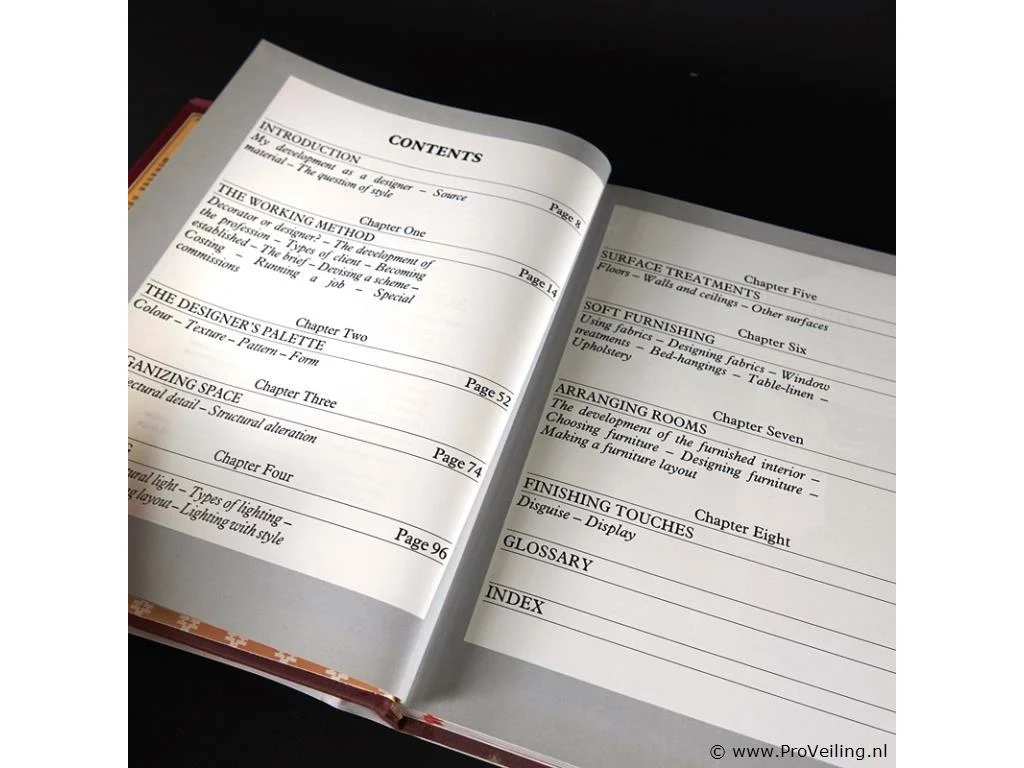 CONTENTS
INTRODUCTION
My development as a designer – Source
material – The question of style
Page 8
Chapter One
THE WORKING METHOD
Decorator or designer? – The development of
the profession – Types of client – Becoming
established – The brief – Devising a scheme –
Costing – Running a job – Special
commissions
Page 14
Chapter Two
THE DESIGNER'S PALETTE
Colour – Texture – Pattern – Form
Page 52
Chapter Three
GANIZING SPACE
ectural detail – Structural alteration
Page 74
Chapter Four
G
ural light – Types of lighting –
g layout – Lighting with style
Page 96
Chapter Five
SURFACE TREATMENTS
Floors – Walls and ceilings – Other surfaces
Chapter Six
SOFT FURNISHING
Using fabrics – Designing fabrics – Window
treatments – Bed-hangings – Table-linen –
Upholstery
Chapter Seven
ARRANGING ROOMS
The development of the furnished interior –
Choosing furniture – Designing furniture –
Making a furniture layout
Chapter Eight
FINISHING TOUCHES
Disguise – Display
GLOSSARY
INDEX
© www.ProVeiling.nl